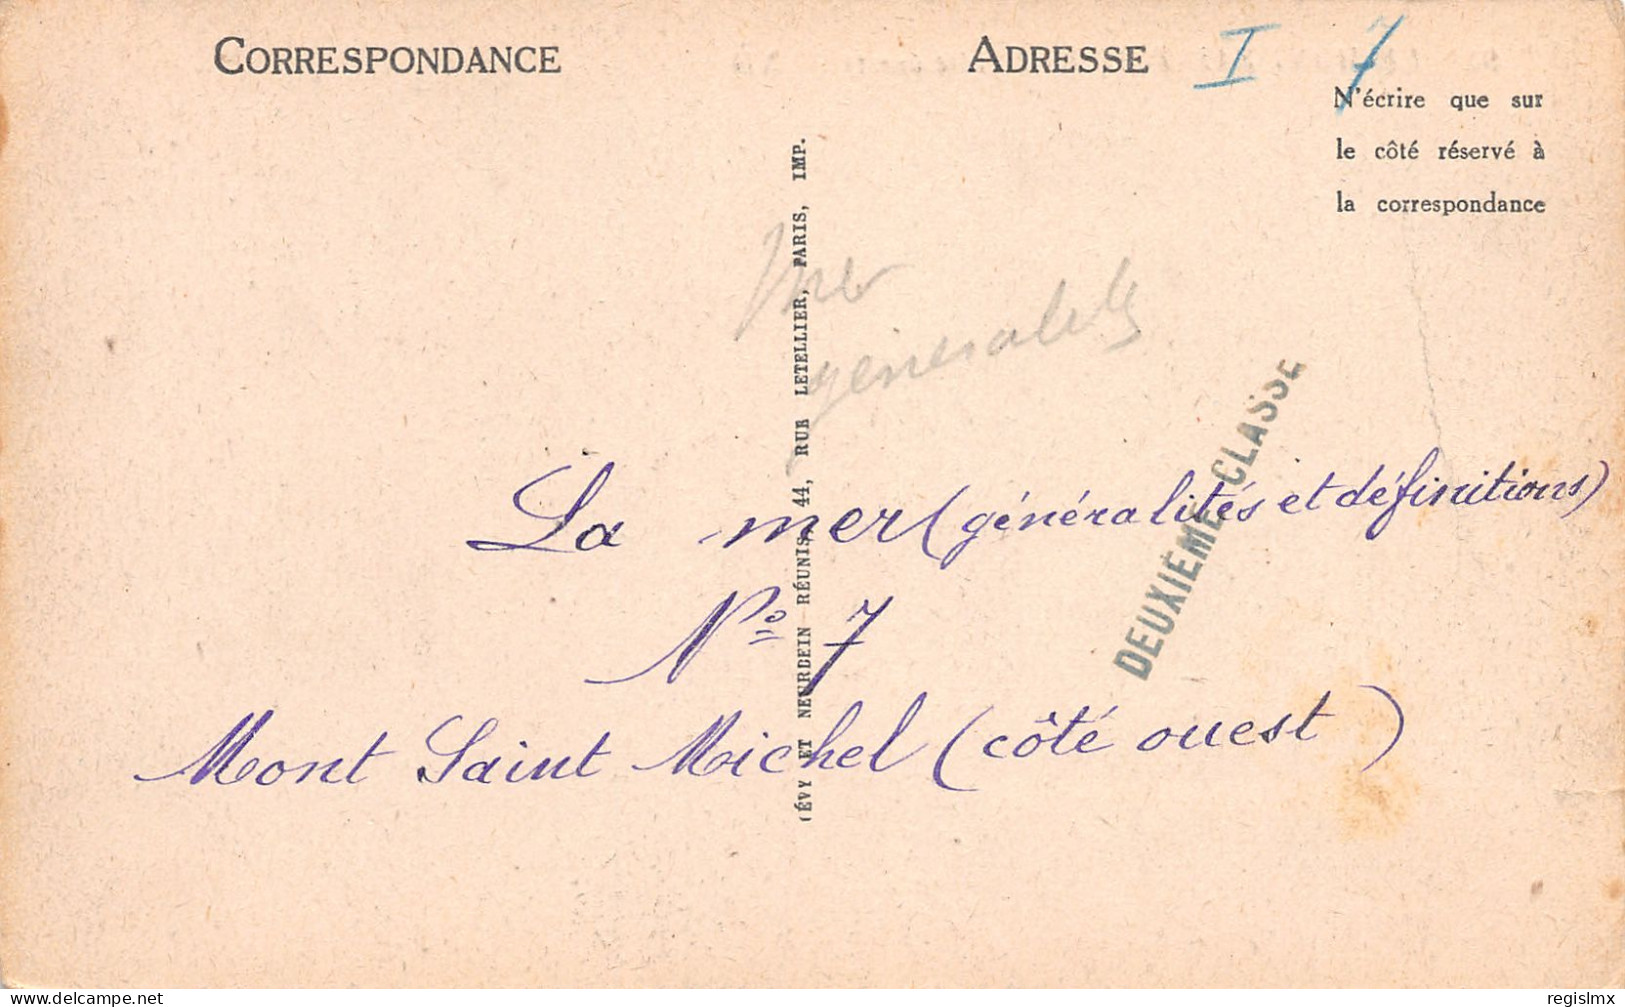 CORRESPONDANCE
ADRESSE
I 7
N'écrire que sur
le côté réservé à
la correspondance
(ÉVY ET NEURDEIN RÉUNIS, 44, RUE LETELLIER, PARIS, IMP.
Mer
généralités
DEUXIÈME CLASSE
La mer (généralités et définitions)
Nº 7
Mont Saint Michel (côté ouest)
www.delcampe.net
regislmx